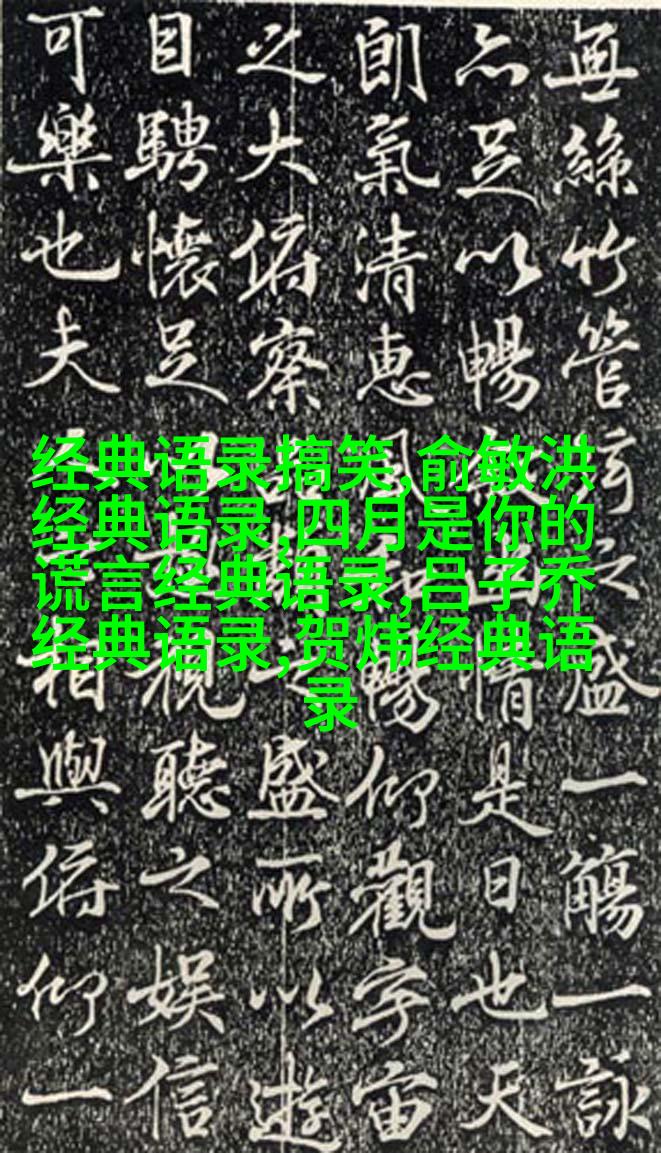 無絲竹管弦之盛一觴一詠
亦足以暢敘情是日也天
朗氣清惠風暢仰觀宇宙
之大俯察之盛所以遊
目騁懷足視聽之娛信
可樂也夫相與俯仰一
经典语录搞笑,俞敏洪
经典语录,四月是你的
谎言经典语录,吕子乔
经典语录,贺炜经典语
录